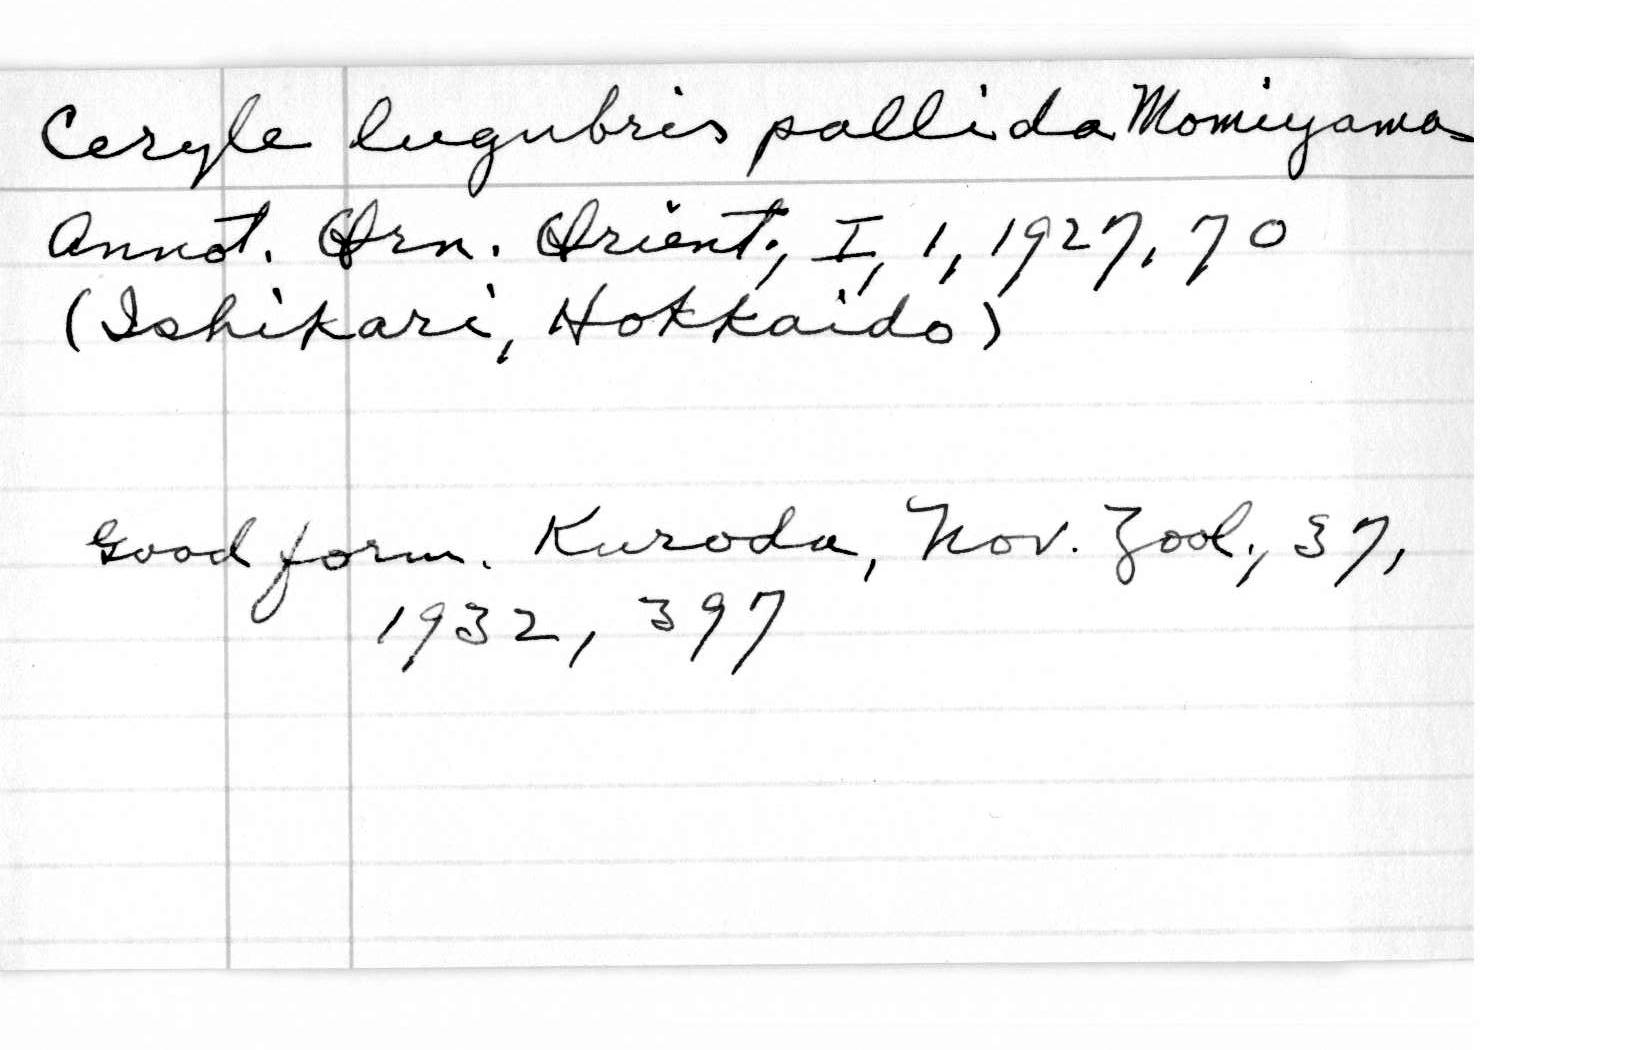 Ceryle lugubris pallida Momiyama
Annot. Orn. Orient., I, 1, 1927, 70
(Ishikari, Hokkaido)
Good form. Kuroda, Nov. Zool., 37,
1932, 397